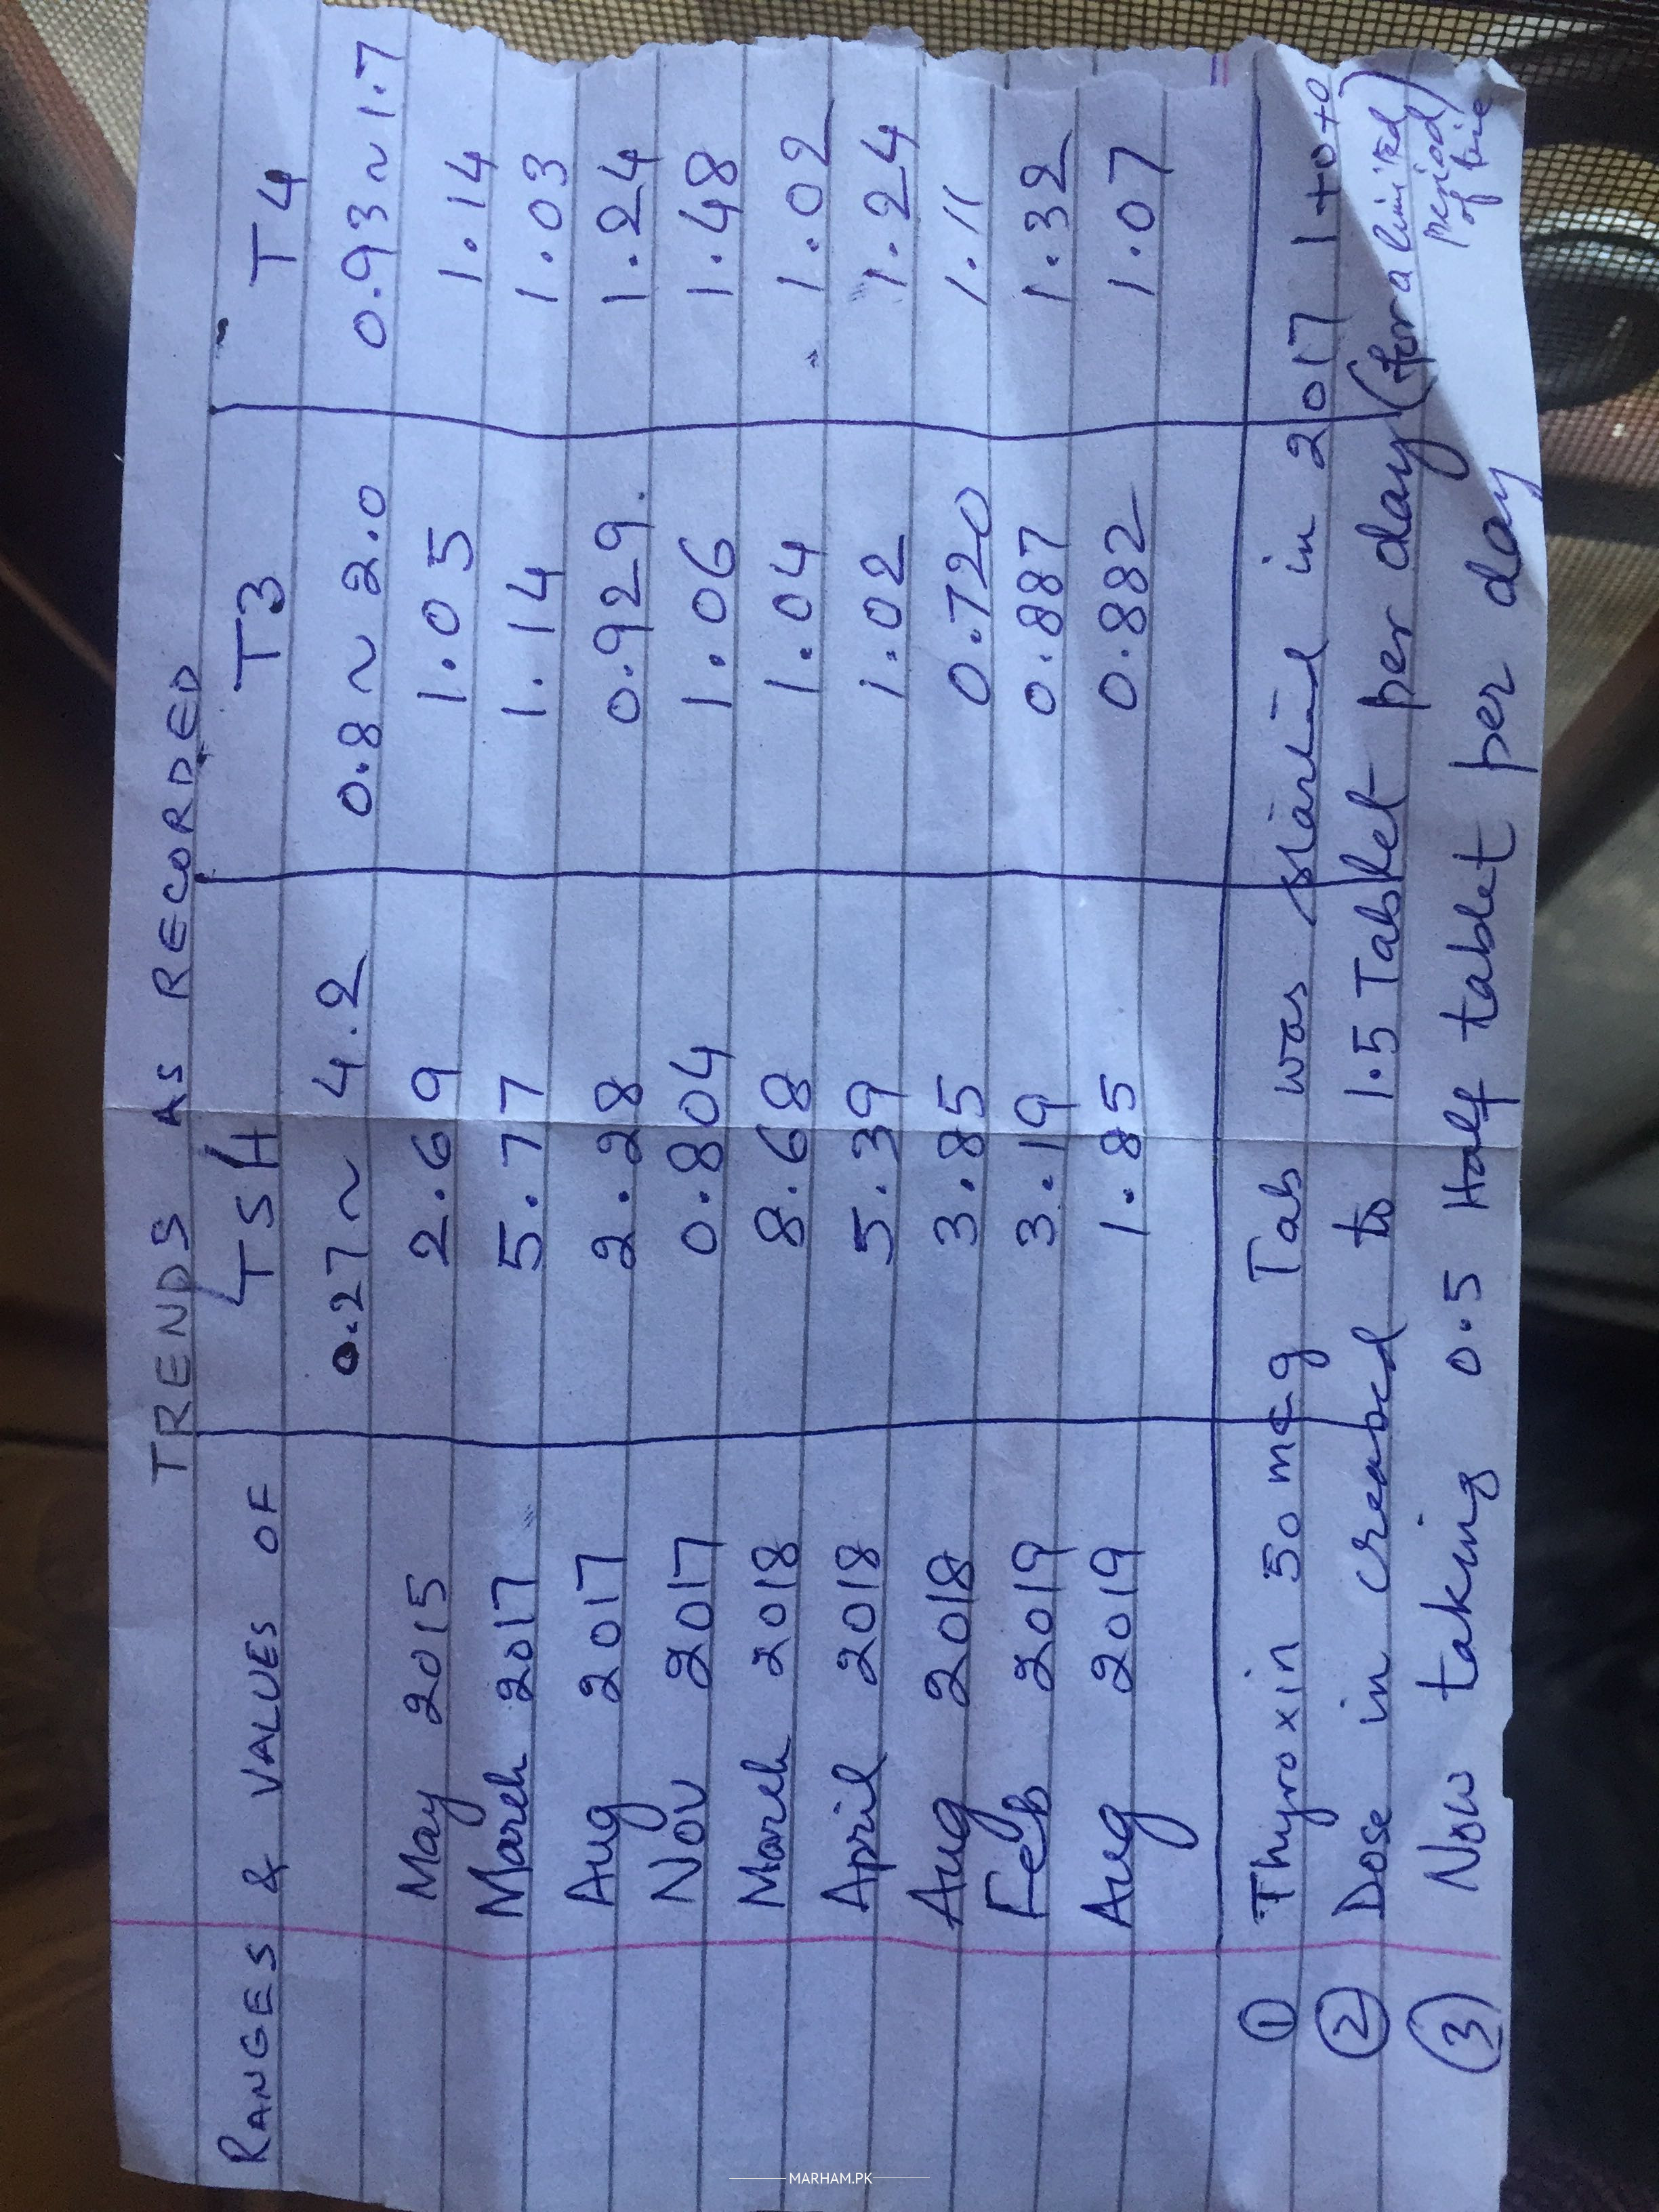 TRENDS AS RECORDED
RANGES & VALUES OF TSH T3 T4
0.27 ~ 4.2 0.8 ~ 2.0 0.93 ~ 1.7
May 2015 2.69 1.05 1.14
March 2017 5.77 1.14 1.03
Aug 2017 2.28 0.929. 1.24
Nov 2017 0.804 1.06 1.48
March 2018 8.68 1.04 1.02
April 2018 5.39 1.02 1.24
Aug 2018 3.85 0.720 1.11
Feb 2019 3.19 0.887 1.32
Aug 2019 1.85 0.882 1.07
① Thyroxin 50 mcg Tab was started in 2017 1+0+0
② Dose in creabed to 1.5 Tablet per day (for a limited period of time)
③ Now taking 0.5 Half tablet per day
MARHAM.PK